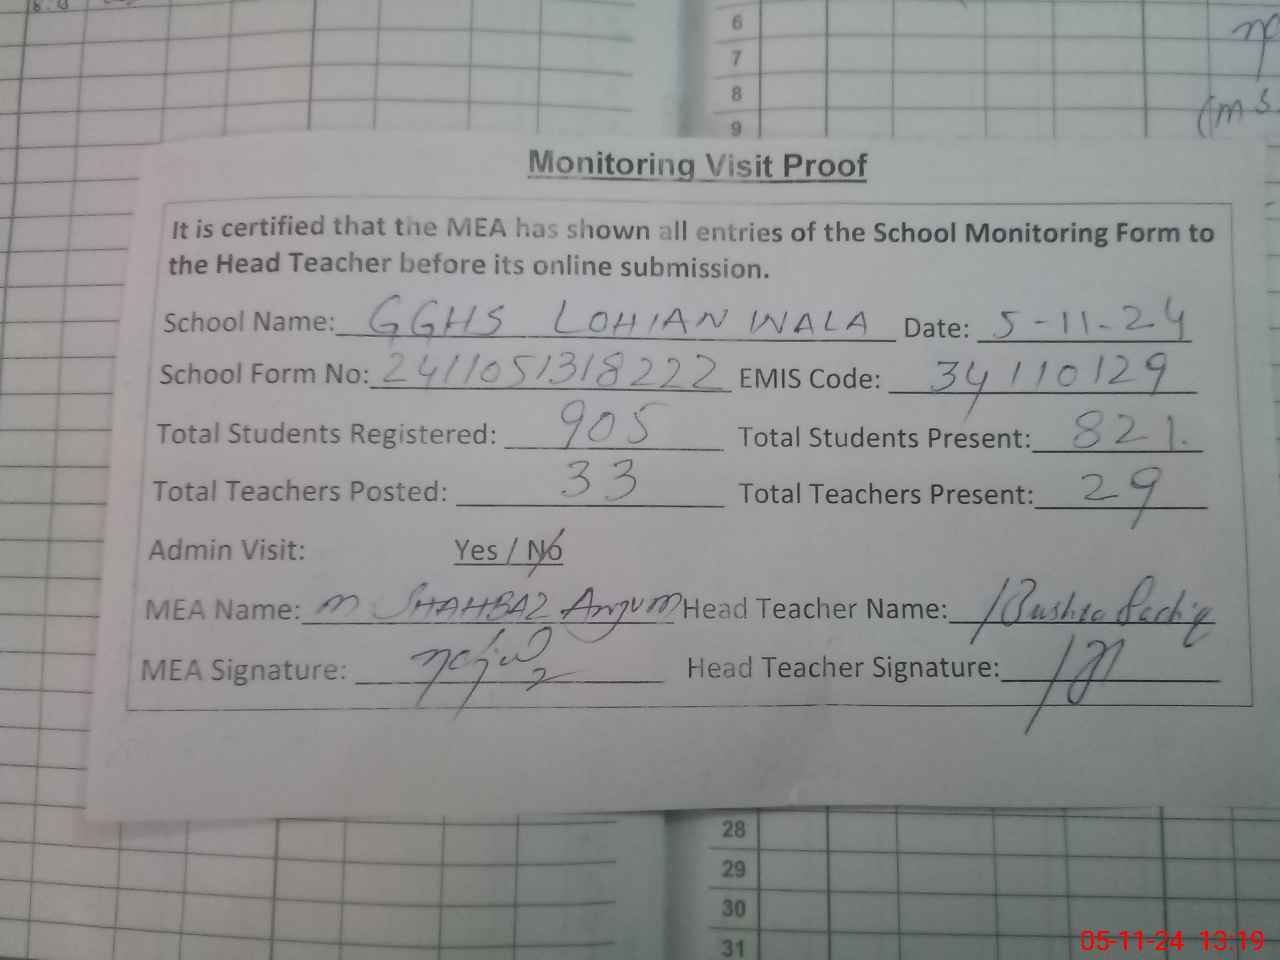 6
7
8
9
(m S
Monitoring Visit Proof
It is certified that the MEA has shown all entries of the School Monitoring Form to
the Head Teacher before its online submission.
School Name: GGHS LOHIAN WALA Date: 5-11-24
School Form No: 2411051318222 EMIS Code: 34110129
Total Students Registered: 905 Total Students Present: 821.
Total Teachers Posted: 33 Total Teachers Present: 29
Admin Visit: Yes / No
MEA Name: M SHAHBAZ Anjum Head Teacher Name: Bushra Sadiq
MEA Signature: Head Teacher Signature:
28
29
30
31
05-11-24 13:19